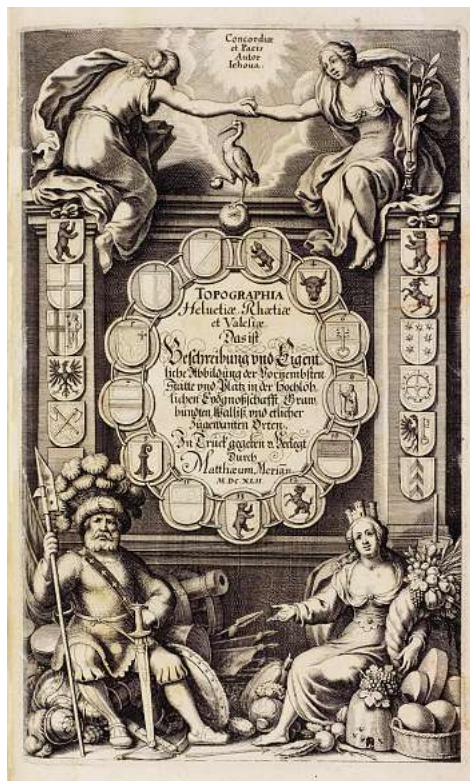 Concordiæ
et Pacis
Autor
Iehoua.
TOPOGRAPHIA
Helvetiæ, Rhætiæ,
et Valesiæ.
Das ist
Beschreibung vnd Eigent
liche Abbildung der Vornembsten
Stätte vnd Plätz, in der Hochlöb
lichen Eydgnoßschafft, Graw
bündten, Walliß, vnd etlicher
Zugewanten Orten.
In Truck gegeben v. Verlegt
Durch
Matthæum Merian
M. DC XLII